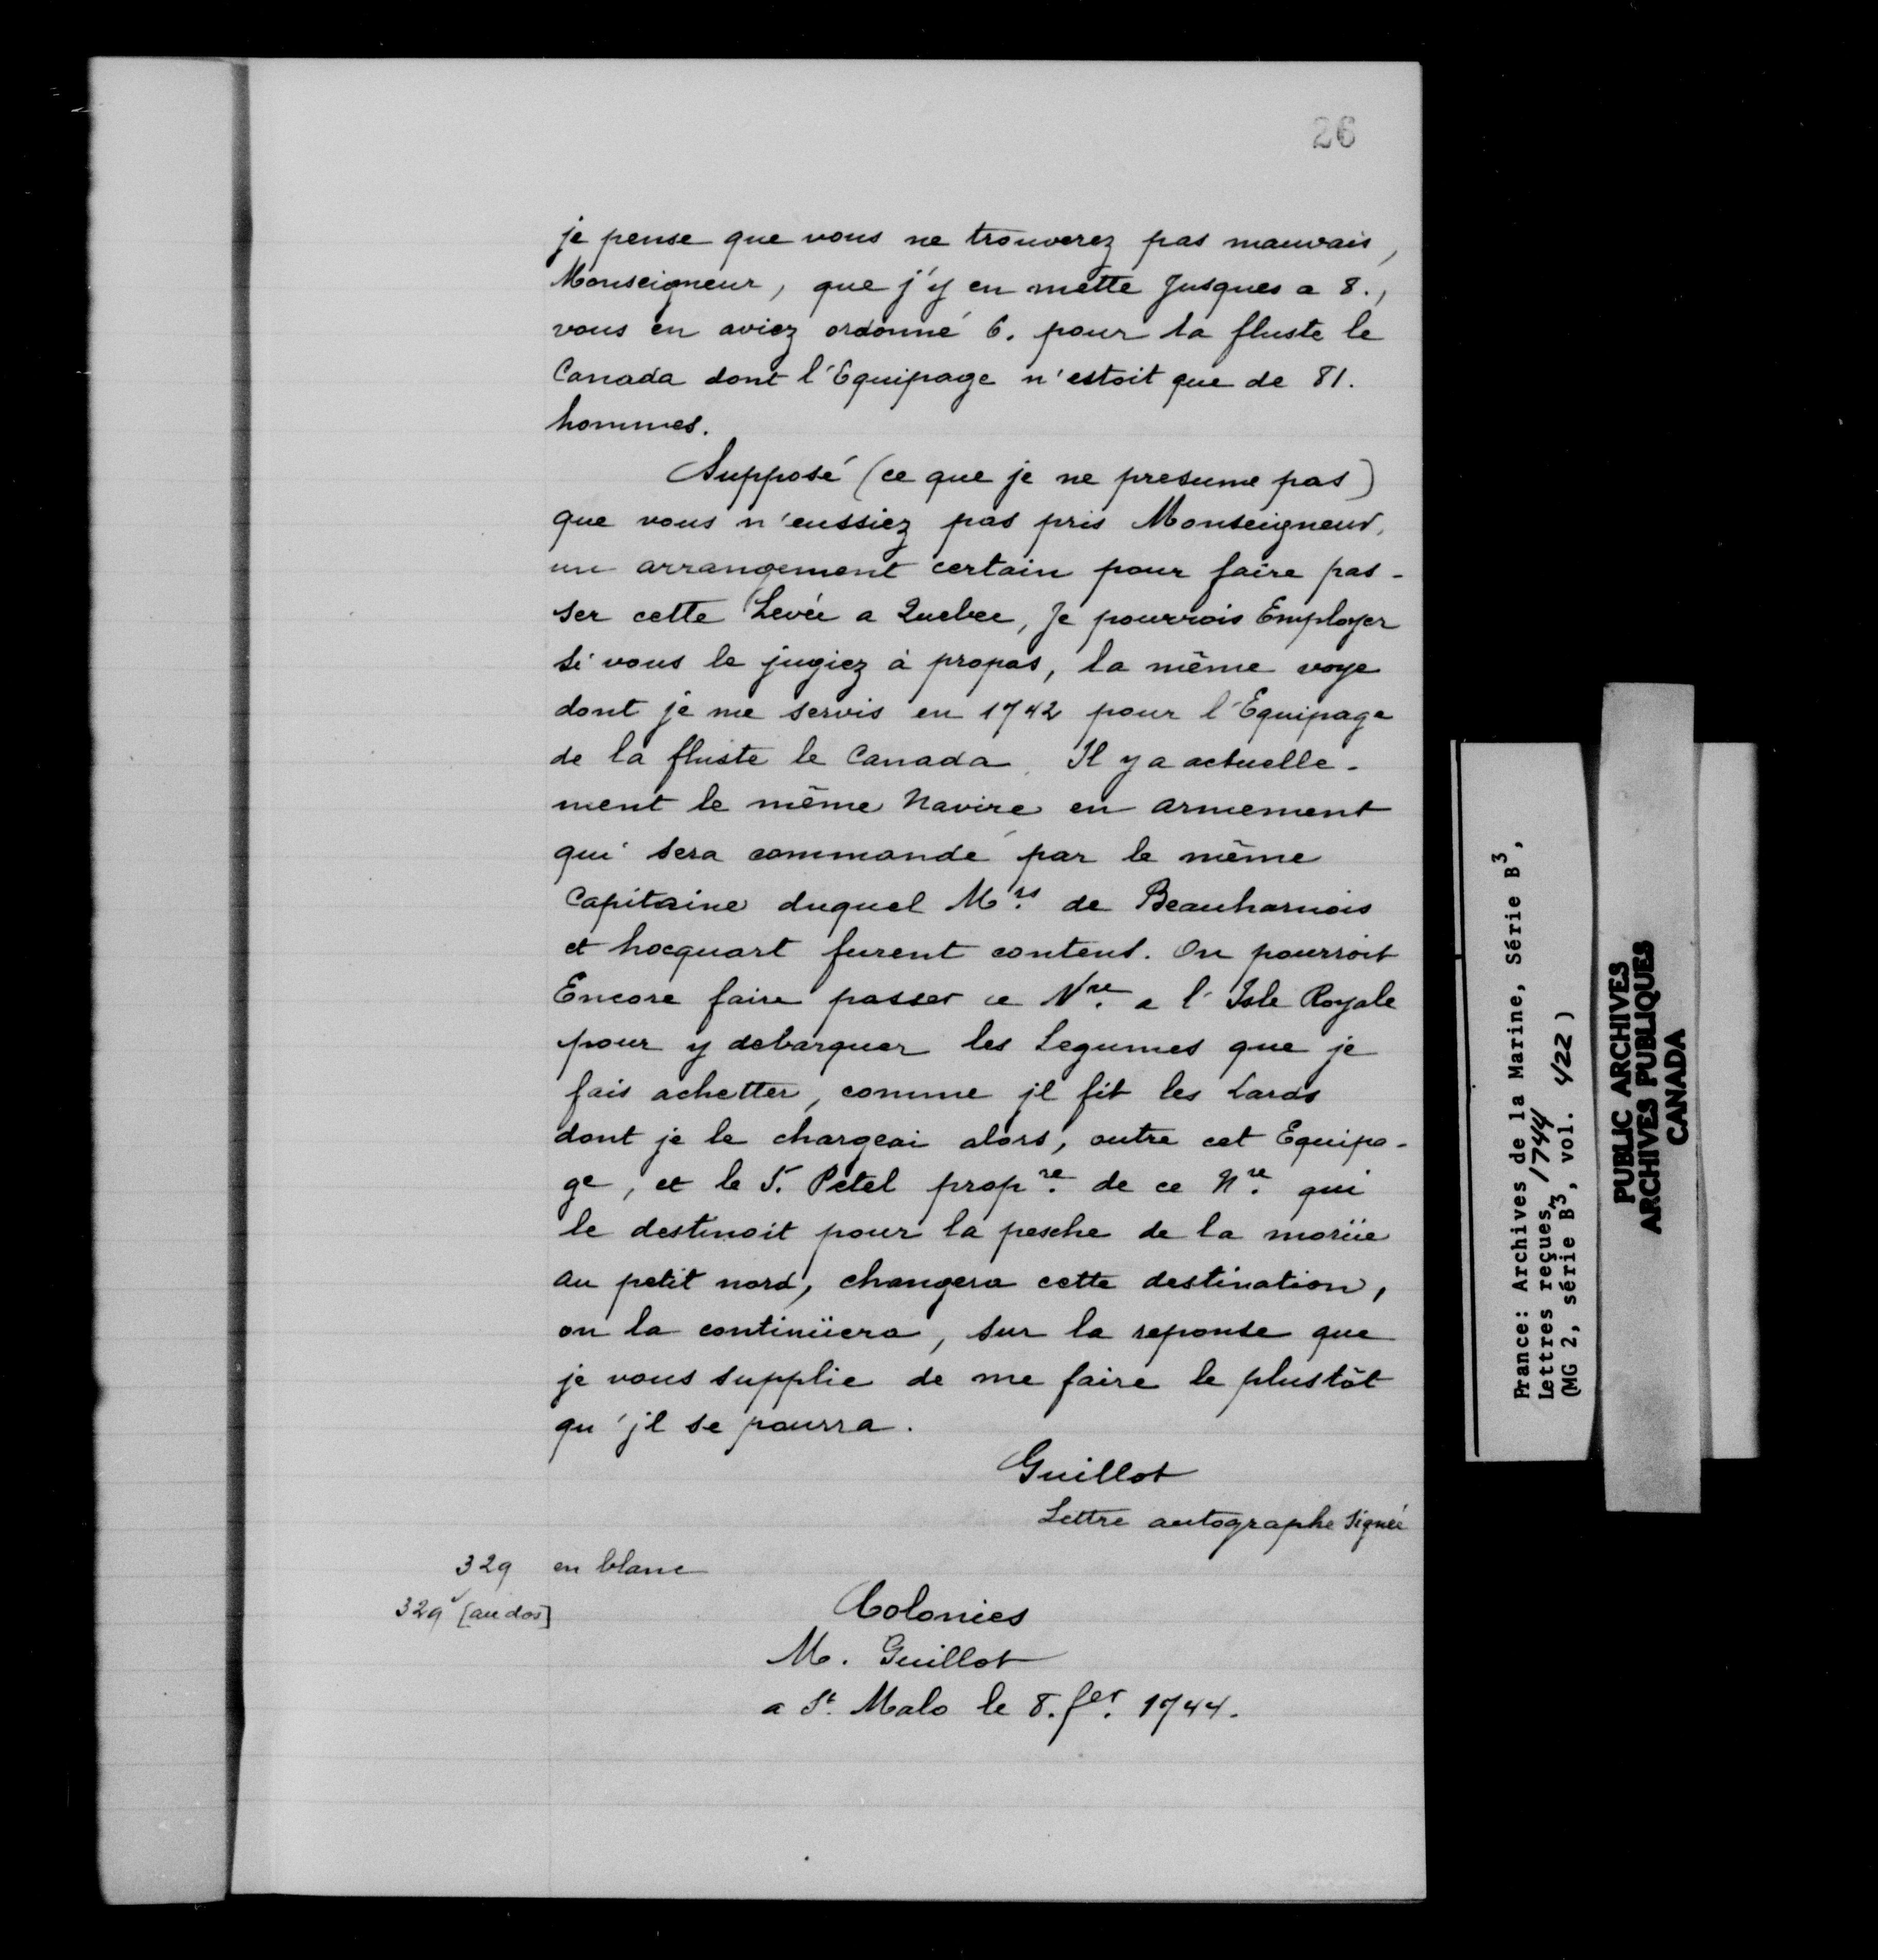 26
je pense que vous ne trouverez pas mauvais,
Monseigneur, que j'y en mette Jusques a 8.,
vous en aviez ordonné 6. pour la fluste le
Canada dont l'Equipage n'estoit que de 81.
hommes.
Supposé (ce que je ne presume pas)
que vous n'eussiez pas pris Monseigneur,
un arrangement certain pour faire pas-
ser cette Levée a Quebec, Je pourrois Employer
si vous le jugiez à propos, la même voye
dont je me servis en 1742 pour l'Equipage
de la fluste le Canada. Il y a actuelle-
ment le même Navire en armement
qui sera commandé par le même
Capitaine duquel Mrs. de Beauharnois
et hocquart furent contens. On pourroit
Encore faire passer ce Nre. a l'Isle Royale
pour y debarquer les Legumes que je
fais achetter, comme jl fit les Lards
dont je le chargeai alors, outre cet Equipa-
ge, et le S. Petel propre. de ce Nre. qui
le destinoit pour la pesche de la morüe
au petit nord, changera cette destination,
ou la continüera, sur la reponse que
je vous supplie de me faire le plustôt
qu'jl se pourra.
Guillot
Lettre autographe signée
329 en blanc
329v [au dos]
Colonies
M. Guillot
a St. Malo le 8. fer. 1744.
France: Archives de la Marine, Série B3,
Lettres reçues, 1744
(MG 2, série B3, vol. 422)
PUBLIC ARCHIVES
ARCHIVES PUBLIQUES
CANADA